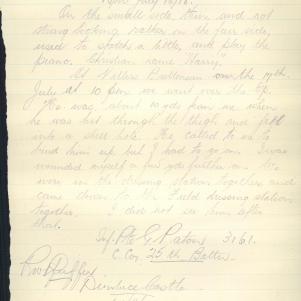 On the small side, thin and not
strong looking rather on the fair side,
used to sketch a little, and play the
piano. Christian name "Harry".
At Villers Brettoneux on the 17th
July at 10 pm we went over the top.
He was about 10 yds from me when
he was hit through the thigh and fell
into a shell hole. He called to me to
bind him up but I had to go on. I was
wounded myself a few yds further on. We
were in the dressing station together and
came down to the Field dressing station
together. I did not see him after
that.
Inf. Pte G. Paton 3161.
C. Coy. 25th Battn.
Dunluce Castle